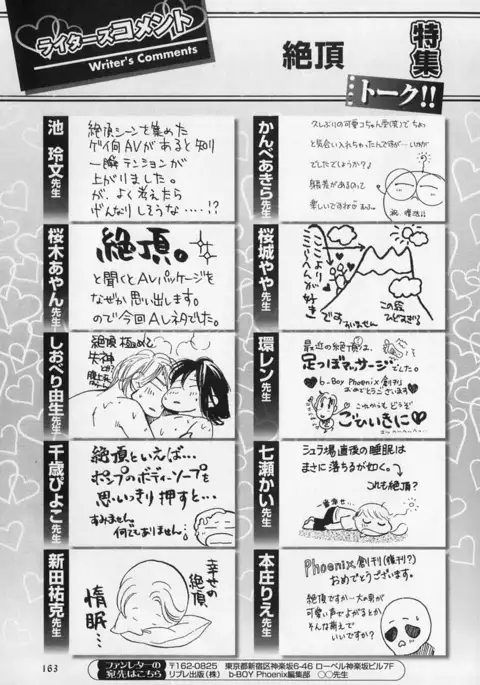 ライターズコメント
Writer's Comments
絶頂
特集
トーク!!
かんべあきら先生
久しぶりの可愛コちゃん受(笑)で ちょっ
と気合い入れちゃったんですが…いかが
でしたでしょうか?♪
があるので
楽しいですねが
池 玲文先生
絶頂シーンを集めた
ゲイ向AVがあると知り
一瞬テンションが
上がりました。
が、よく考えたら
げんなりしそうな……!?
桜城やや先生
ここより
こっちへんが
好きです
この絵
ひどすぎる
すいません
桜木あやん先生
絶頂。
と聞くとAVパッケージを
なぜか思い出します。
ので今回AVネタでした。
環レン先生
最近の絶頂は、
足つぼマッサージ
でした。
♥b-Boy Phoenix 創刊♥
おめでとうございます
これからもどうぞ
ごひいきに♥
しおべり由生先生
絶頂 極めて
失神
七瀬かい先生
シュラ場直後の睡眠は
まさに落ちるが如く。
これも絶頂?
千歳ぴよこ先生
絶頂といえば…
ポンプのボディーソープを
思いっきり押すと…
すみません
何でもありません…
本庄りえ先生
Phoenix創刊(復刊?)
おめでとうございます。
絶頂ですか…大の男が
可愛い声でよがるとか
そんな萌えで
いいですか?
新田祐克先生
幸せの
絶頂
惰眠…
163
ファンレターの
宛先はこちら
〒162-0825 東京都新宿区神楽坂6-46 ローベル神楽坂ビル7F
リブレ出版(株) b-BOY Phoenix編集部 ○○先生